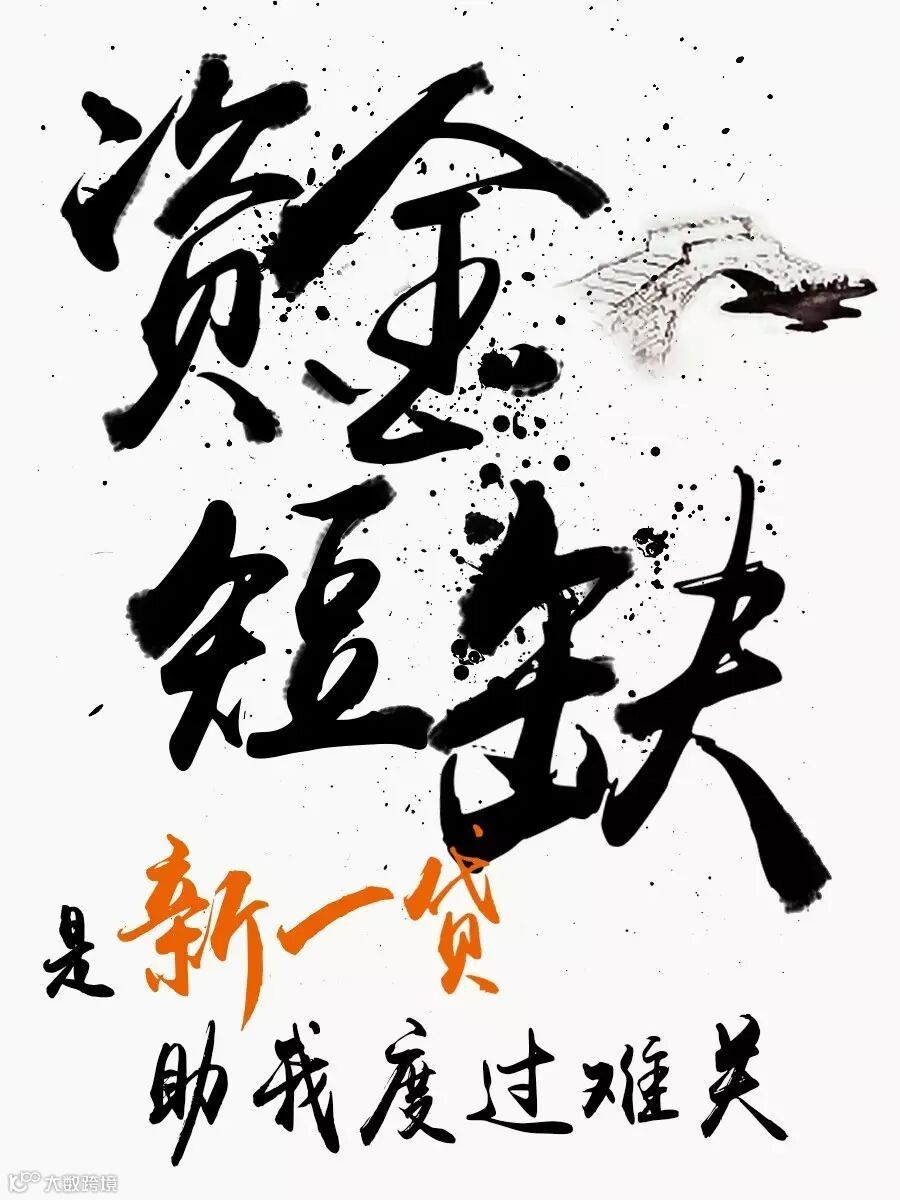 资金
短缺
是新一贷
助我度过难关
大数跨境